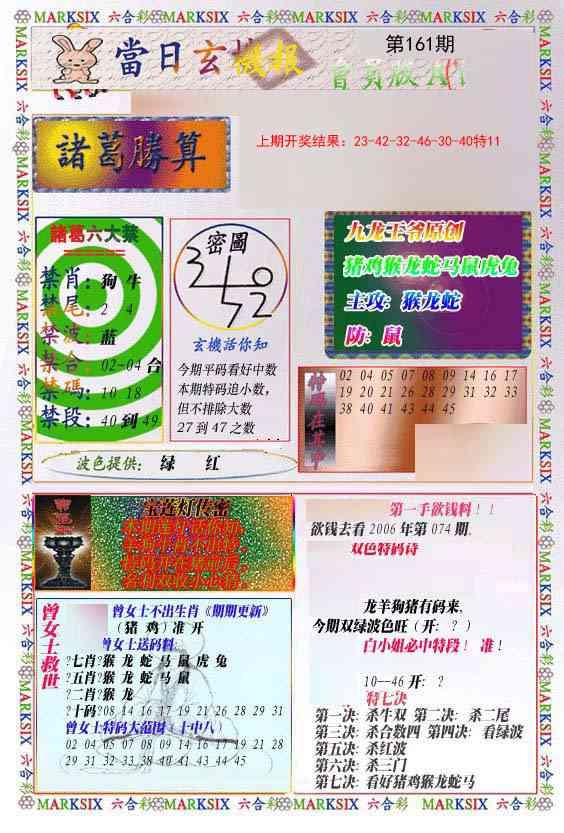 MARKSIX 六合彩 MARKSIX 六合彩 MARKSIX 六合彩 MARKSIX 六合彩 MARKSIX
當日玄機報
第161期
會員版A
諸葛勝算
上期开奖结果：23-42-32-46-30-40特11
諸葛六大禁
禁肖：狗 牛
禁尾：2 4
禁波：蓝
禁合：02-04合
禁碼：10 18
禁段：40到49
密圖
玄機活你知
今期平码看好中数
本期特码追小数，
但不排除大数
27 到 47 之数
九龙王爷原创
猪鸡猴龙蛇马鼠虎兔
主攻：猴龙蛇
防：鼠
特碼在其中
02 04 05 07 08 09 14 16 17
19 20 21 26 28 29 31 32 33
38 40 41 43 44 45
波色提供： 绿 红
宝莲灯传密
曾女士救世
曾女士不出生肖《期期更新》
（猪 鸡）准 开
曾女士送码料
?七肖?猴 龙 蛇 马 鼠 虎 兔
?五肖?猴 龙 蛇 马 鼠
?二肖?猴 龙
?十码?08 14 16 17 19 21 26 28 29 31
曾女士特码大范围（十中八）
02 04 05 07 08 09 14 16 17 19 21 28
29 31 32 33 38 40 41 43 44 45
第一手欲钱料！！
欲钱去看 2006 年第 074 期.
双色特码诗
龙羊狗猪有码来,
今期双绿波色旺（开：？）
白小姐必中特段！ 准！
10--46 开：？
特七决
第一决：杀牛双 第二决：杀二尾
第三决：杀合数四 第四决：看绿波
第五决：杀红波
第六决：杀三门
第七决：看好猪鸡猴龙蛇马
MARKSIX 六合彩 MARKSIX 六合彩 MARKSIX 六合彩 MARKSIX 六合彩 MARKSIX